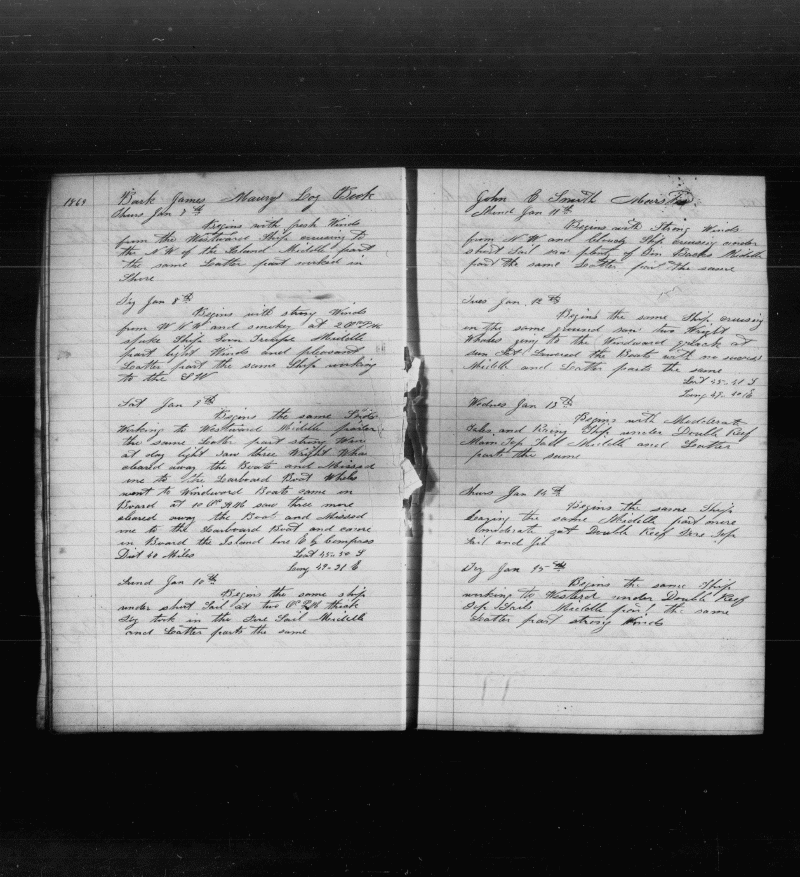 1869
Bark James Maury Log Book
Thurs Jan 7th
Begins with fresh Winds
from the Westward Ship cruising to
the N W of the Island Middle part
the same Latter part worked in
Shore
Fry Jan 8th
Begins with strong Winds
from W N W and smokey at 2 O P M
spoke Ship Middle
part light Winds and pleasant
Latter part the same Ship working
to the S W
Sat Jan 9th
Begins the same Ship
Working to Westward Middle parter
the same Latter part strong Win
at day light saw three Wright Wha
cleared away the Boats and Missed
me to the Larboard Boat Whales
went to Windward Boats came in
Board at 10 O A M saw three more
cleared away the Boat and Missed
me to the Larboard Boat and came
in Board the Island bore E by Compass
Dist 40 Miles Latt 45-50 S
Long 49-31 E
Sund Jan 10th
Begins the same ship
under short Sail at two O P M thick
Fog took in the Fore Sail Middle
and Latter parts the same
John C Smith Marster
Mond Jan 11th
Begins with Strong Winds
from N W and cloudy Ship cruising under
short Sail saw plenty of Fin Backs Middle
part the same Latter part the same
Tues Jan 12th
Begins the same Ship cruising
in the same ground saw two Wright
Whales going to the Windward at
sun Set Lowered the Boats with no success
Middle and Latter parts the same
Latt 45-41 S
Long 49-40 E
Wednes Jan 13th
Begins with Modderate
Gales and Ship under Double Reef
Main Top Sall Middle and Latter
parts the same
Thurs Jan 14th
Begins the same Ship
heading the same Middle part more
modderate set Double Reef Fore Top
Sail and Jib
Fry Jan 15th
Begins the same Ship
working to Westerd under Double Reef
Top Sails Middle part the same
Latter part strong Winds